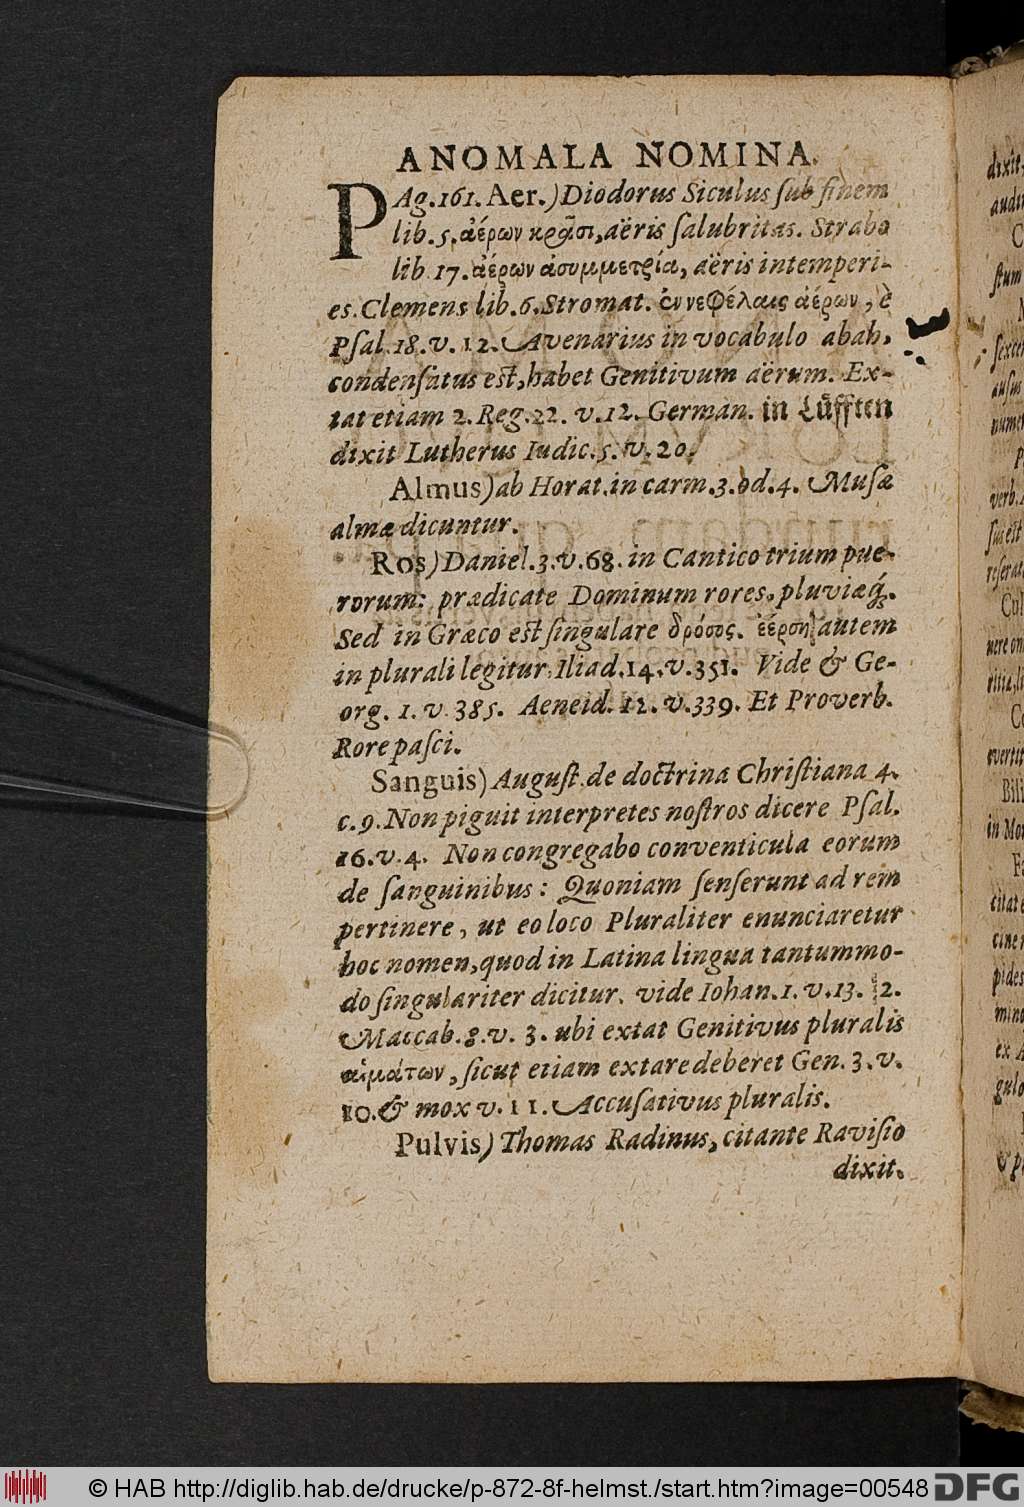 ANOMALA NOMINA.
PAg.161. Aer.) Diodorus Siculus ſub finem
lib. 5. ἀέρων κρᾶσι, aëris ſalubritas. Strabo
lib 17. ἀέρων ἀσυμμετρία, aëris intemperi-
es. Clemens lib. 6. Stromat. ἐν νεφέλαις ἀέρων, è
Pſal. 18. v. 12. Avenarius in vocabulo abah,
condenſatus est, habet Genitivum aërum. Ex-
tat etiam 2. Reg. 22. v. 12. German. in Lüfften
dixit Lutherus Iudic. 5. v. 20.
Almus) ab Horat. in carm. 3. od. 4. Muſæ
almæ dicuntur.
Ros) Daniel. 3. v. 68. in Cantico trium pue-
rorum: prædicate Dominum rores, pluviæq́;.
Sed in Græco est ſingulare δρόσος. ἐέρση autem
in plurali legitur Iliad. 14. v. 351. Vide & Ge-
org. 1. v 385. Aeneid. 12. v. 339. Et Proverb.
Rore paſci.
Sanguis) Auguſt. de doctrina Chriſtiana 4.
c. 9. Non piguit interpretes noſtros dicere Pſal.
16. v. 4. Non congregabo conventicula eorum
de ſanguinibus: Quoniam ſenſerunt ad rem
pertinere, ut eo loco Pluraliter enunciaretur
hoc nomen, quod in Latina lingua tantummo-
do ſingulariter dicitur. vide Iohan. 1. v. 13. 2.
Maccab. 8. v. 3. ubi extat Genitivus pluralis
αἱμάτων, ſicut etiam extare deberet Gen. 3. v.
10. & mox v. 11. Accuſativus pluralis.
Pulvis) Thomas Radinus, citante Raviſio
dixit.
© HAB http://diglib.hab.de/drucke/p-872-8f-helmst./start.htm?image=00548 DFG